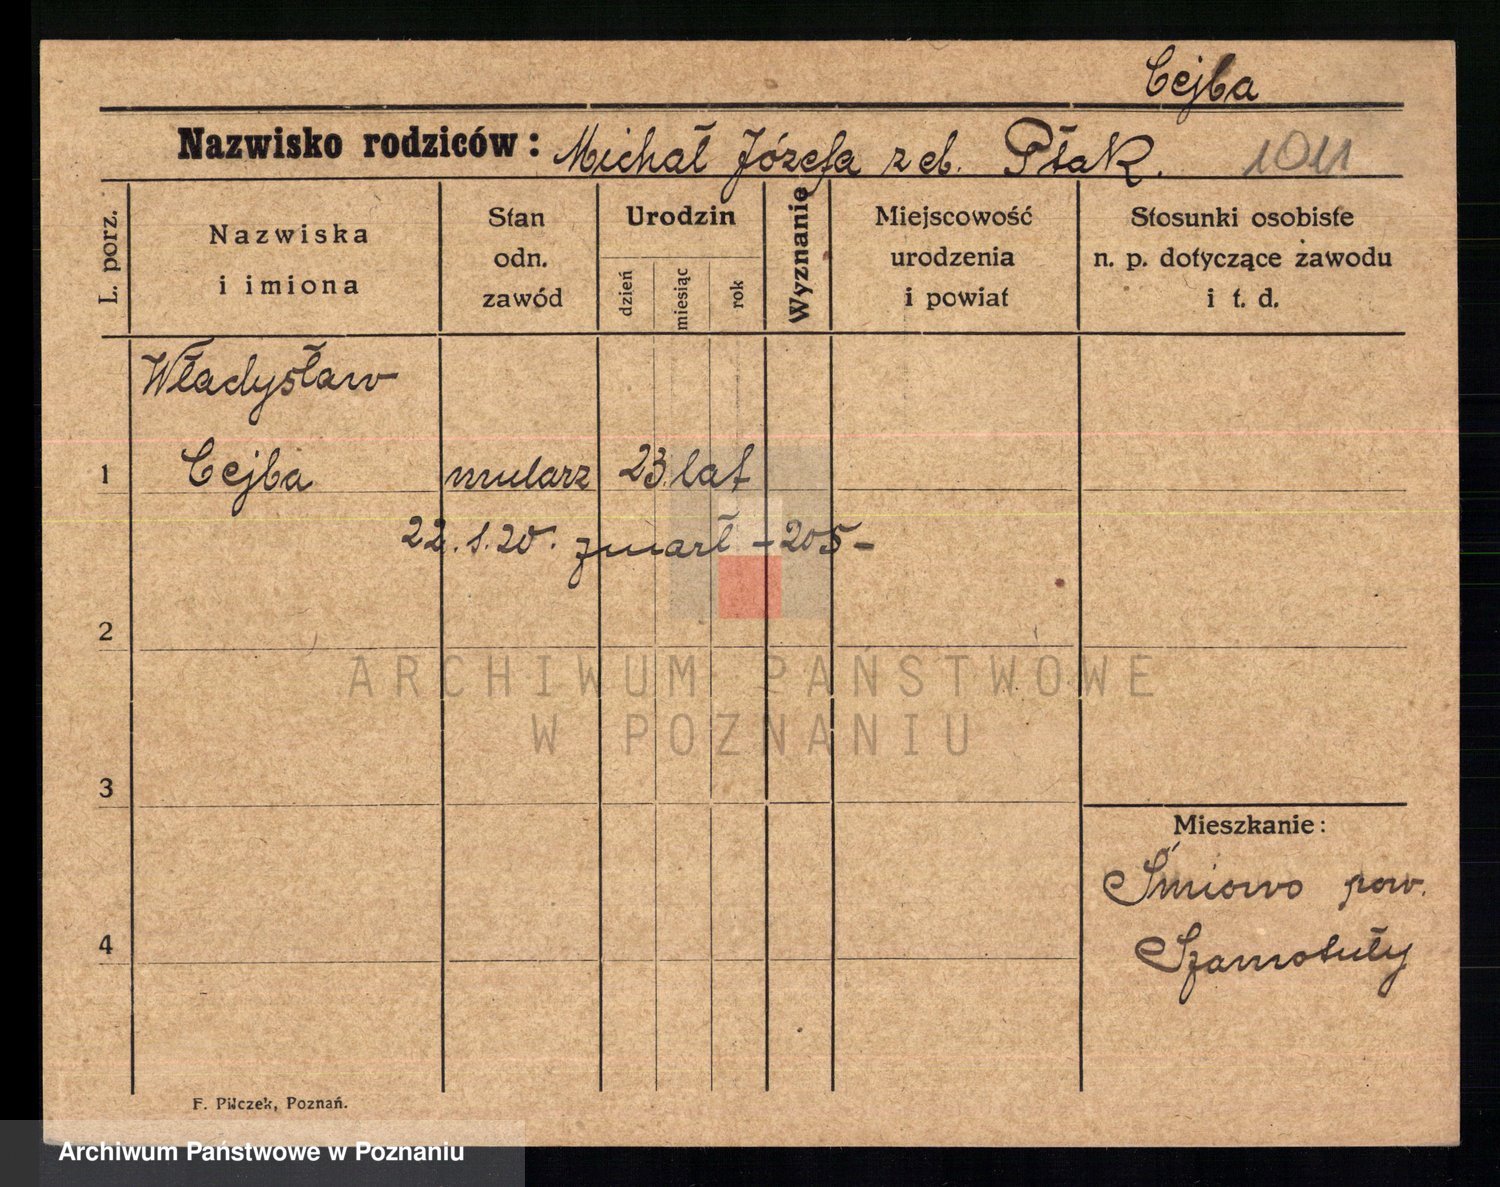 Cejba
Nazwisko rodziców: Michał Józefa z eb. Ptak. 1011
L. porz.
Nazwiska i imiona
Stan odn. zawód
Urodzin
dzień
miesiąc
rok
Wyznanie
Miejscowość urodzenia i powiat
Stosunki osobiste n. p. dotyczące zawodu i t. d.
Władysław
1 Cejba mularz 23 lat
22.1.20. zmarł -205-
2
ARCHIWUM PAŃSTWOWE
W POZNANIU
3
Mieszkanie:
Śmiowo pow.
4 Szamotuły
F. Pilczek, Poznań.
Archiwum Państwowe w Poznaniu